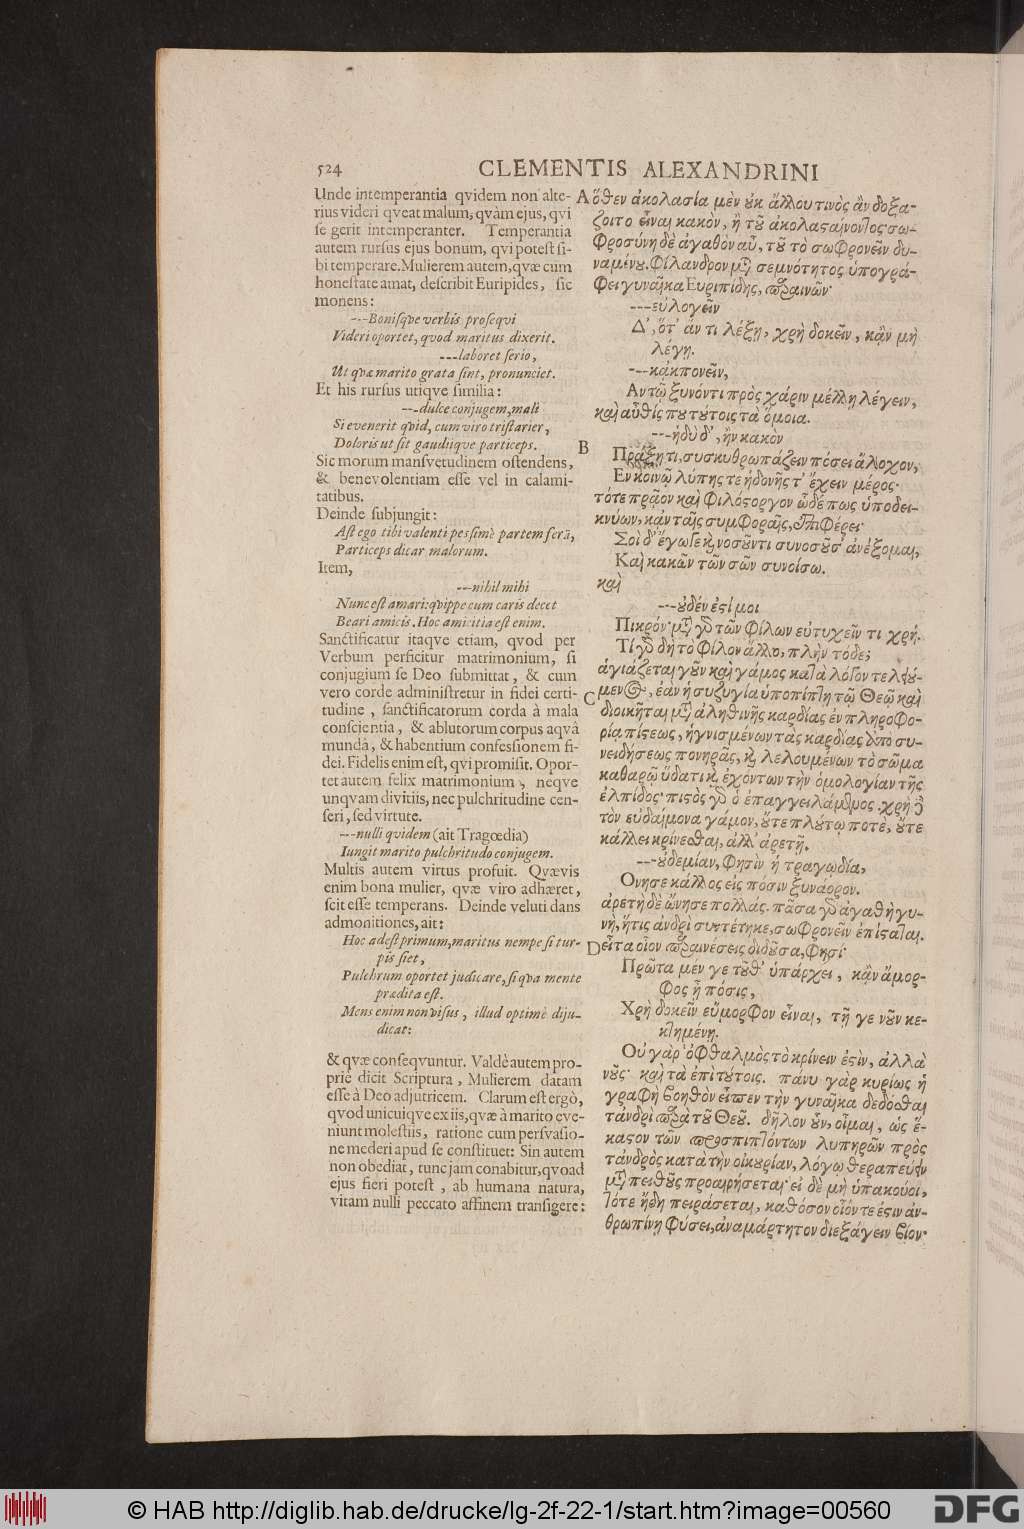 524
CLEMENTIS ALEXANDRINI
Unde intemperantia qvidem non alte-
rius videri qveat malum, qvàm ejus, qvi
se gerit intemperanter. Temperantia
autem rursus ejus bonum, qvi potest si-
bi temperare. Mulierem autem, qvæ cum
honestate amat, describit Euripides, sic
monens:
---Bonisqve verbis proseqvi
Videri oportet, qvod maritus dixerit.
---laboret serio,
Ut qvæ marito grata sint, pronunciet.
Et his rursus utiqve similia:
---dulce conjugem, mali
Si evenerit qvid, cum viro tristarier,
Doloris ut sit gaudiiqve particeps.
Sic morum mansvetudinem ostendens,
& benevolentiam esse vel in calami-
tatibus.
Deinde subjungit:
Ast ego tibi valenti pessimè partem ferā,
Particeps dicar malorum.
Item,
---nihil mihi
Nunc est amari: qvippe cum caris decet
Beari amicis. Hoc amicitia est enim.
Sanctificatur itaqve etiam, qvod per
Verbum perficitur matrimonium, si
conjugium se Deo submittat, & cum
vero corde administretur in fidei certi-
tudine, sanctificatorum corda à mala
conscientia, & ablutorum corpus aqvâ
mundâ, & habentium confessionem fi-
dei. Fidelis enim est, qvi promisit. Opor-
tet autem felix matrimonium, neqve
unqvam divitiis, nec pulchritudine cen-
seri, sed virtute.
---nulli qvidem (ait Tragœdia)
Iungit marito pulchritudo conjugem.
Multis autem virtus profuit. Qvævis
enim bona mulier, qvæ viro adhæret,
scit esse temperans. Deinde veluti dans
admonitiones, ait:
Hoc adest primum, maritus nempe si tur-
pis siet,
Pulchrum oportet judicare, si qva mente
prædita est.
Mens enim non visus, illud optimè diju-
dicat:
& qvæ conseqvuntur. Valdè autem pro-
priè dicit Scriptura, Mulierem datam
esse à Deo adjutricem. Clarum est ergò,
qvod unicuiqve ex iis, qvæ à marito eve-
niunt molestiis, ratione cum persvasio-
ne mederi apud se constituet: Sin autem
non obediat, tunc jam conabitur, qvoad
ejus fieri potest, ab humana natura,
vitam nulli peccato affinem transigere:
A ὅθεν ἀκολασία μὲν οὐκ ἄλλου τινὸς ἂν δοξα-
ζοιτο εἶναι κακὸν, ἢ τοῦ ἀκολασταίνοντος· σω-
φροσύνη δὲ ἀγαθὸν αὖ, τοῦ τὸ σωφρονεῖν δυ-
ναμένου. Φίλανδρον μετὰ σεμνότητος ὑπογρά-
φει γυναῖκα Ευριπίδης, παραινῶν·
---εὐλογεῖν
Δ', ὅτ' ἄν τι λέξῃ, χρὴ δοκεῖν, κἂν μὴ
λέγῃ.
---κἀκπονεῖν,
Αντῷ ξυνόντι πρὸς χάριν μέλλῃ λέγειν,
καὶ αὖθίς που τούτοις τὰ ὅμοια.
---ἡδὺ δ', ἢν κακον
B
Πράξῃ τι, συσκυθρωπάζειν πόσει ἄλοχον,
Εν κοινῷ λύπης τε ἡδονῆς τ' ἔχειν μέρος·
τότε πρᾷον καὶ φιλόστοργον ὧδέ πως ὑποδει-
κνύων, κἀν ταῖς συμφοραῖς, ἐπιφέρει·
Σοὶ δ' ἔγωγε καὶ νοσοῦντι συνοσοῦσ' ἀνέξομαι,
Καὶ κακῶν τῶν σῶν συνοίσω.
καὶ
---οὐδέν ἐστί μοι
Πικρόν· μετὰ γὰρ τῶν φίλων εὐτυχεῖν τι χρή.
Τί γὰρ δὴ τὸ φίλον ἄλλο, πλὴν τόδε;
ἁγιάζεται γοῦν καὶ γάμος κατὰ λόγον τελειού-
C μενος, ἐὰν ἡ συζυγία ὑποπίπτῃ τῷ Θεῷ καὶ
διοικῆται μετὰ ἀληθινῆς καρδίας ἐν πληροφο-
ρίᾳ πίστεως, ἡγνισμένων τὰς καρδίας ἀπὸ συ-
νειδήσεως πονηρᾶς, καὶ λελουμένων τὸ σῶμα
καθαρῷ ὕδατι καὶ ἐχόντων τὴν ὁμολογίαν τῆς
ἐλπίδος· πιστὸς γὰρ ὁ ἐπαγγειλάμενος. χρὴ δὲ
τὸν εὐδαίμονα γάμον, οὔτε πλούτῳ ποτὲ, οὔτε
κάλλει κρίνεσθαι, ἀλλ' ἀρετῇ.
---οὐδεμίαν, φησὶν ἡ τραγῳδία,
Ονησε κάλλος εἰς πόσιν ξυνάορον.
ἀρετὴ δὲ ὤνησε πολλάς. πᾶσα γὰρ ἀγαθὴ γυ-
νὴ, ἥτις ἀνδρὶ συντέτηκε, σωφρονεῖν ἐπίσταται.
D εἶτα οἷον παραινέσεις διδοῦσα, φησί·
Πρῶτα μεν γε τοῦθ' ὑπάρχει, κἂν ἄμορ-
φος ᾖ πόσις,
Χρὴ δοκεῖν εὔμορφον εἶναι, τῇ γε νοῦν κε-
κτημένῃ.
Οὐ γὰρ ὀφθαλμὸς τὸ κρίνειν ἐστὶν, ἀλλὰ
νοῦς· καὶ τὰ ἐπὶ τούτοις. πάνυ γὰρ κυρίως ἡ
γραφὴ βοηθὸν εἶπεν τὴν γυναῖκα δεδόσθαι
τἀνδρὶ παρὰ τοῦ Θεοῦ. δῆλον οὖν, οἶμαι, ὡς ἕ-
καστον τῶν προσπιπτόντων λυπηρῶν πρὸς
τἀνδρὸς κατὰ τὴν οἰκουρίαν, λόγῳ θεραπεύειν
μετὰ πειθοῦς προαιρήσεται· εἰ δὲ μὴ ὑπακούοι,
τότε ἤδη πειράσεται, καθόσον οἷόν τε ἐστιν ἀν-
θρωπίνῃ φύσει, ἀναμάρτητον διεξάγειν βίον·
© HAB http://diglib.hab.de/drucke/lg-2f-22-1/start.htm?image=00560
DFG